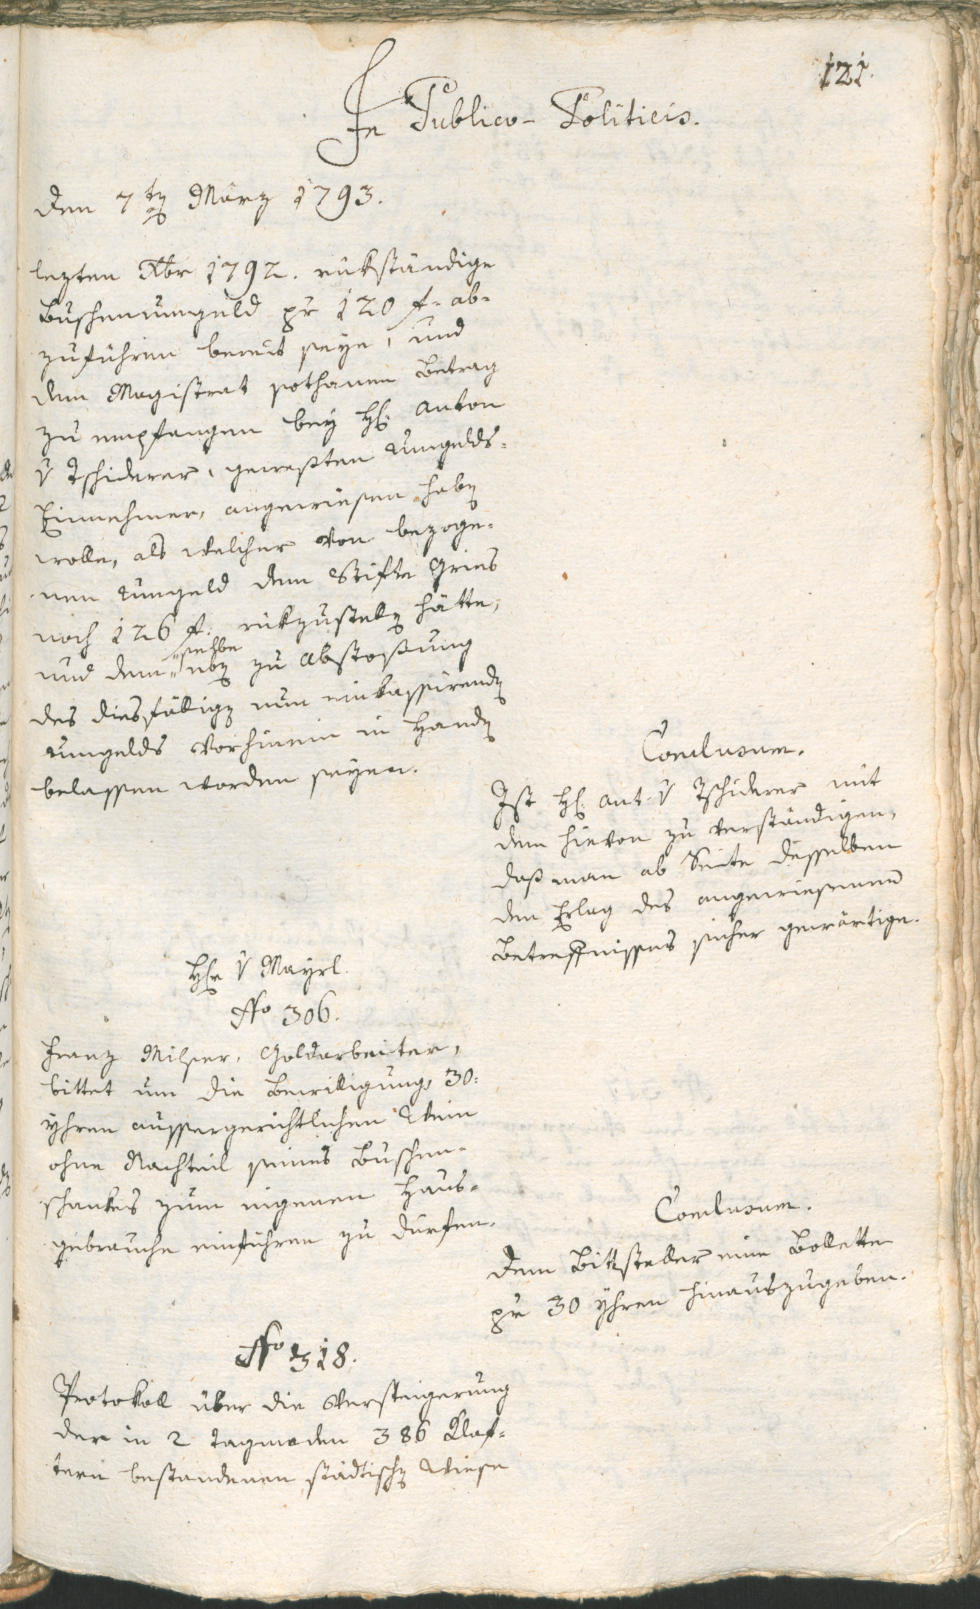 121.
In Publico-Politicis.
Den 7ten März 1793.
lezten Xbr 1792. rükständige
Buschenumgeld pr 120 f. ab-
zuführen bereit seye, und
dem Magistrat sothanen Betrag
zu empfangen bey H: Anton
v Tschiderer, gewesten Umgelds-
Einnehmer, angewiesen haben
wolle, als welcher von bezoge-
nen Umgeld dem Stifte Gries
noch 126 f. rükzustellen hätte,
und dem selbe zu Abstossung
des diesfälligen nun einkassirenden
Umgelds vorhinein in Handen
belassen worden seyen.
Conclusum.
Ist H: Ant. v Tschiderer mit
dem hievon zu verständigen,
daß man ab Seite desselben
den Erlag des angewiesenen
Betreffnisses sicher gewärtige.
Hr v Mayrl.
No 306.
Franz Milser, Goldarbeiter,
bittet um die Bewilligung, 30:
Yhren aussergerichtlichen Wein
ohne Nachteil seines Buschen-
schankes zum eigenen Haus-
gebrauche einführen zu dürfen.
Conclusum.
Dem Bittsteller eine Bollette
pr 30 Yhren hinauszugeben.
No 318.
Protokoll über die Versteigerung
der in 2 Tagmaden 386 Klaf-
tern bestandenen städtischen Wiese